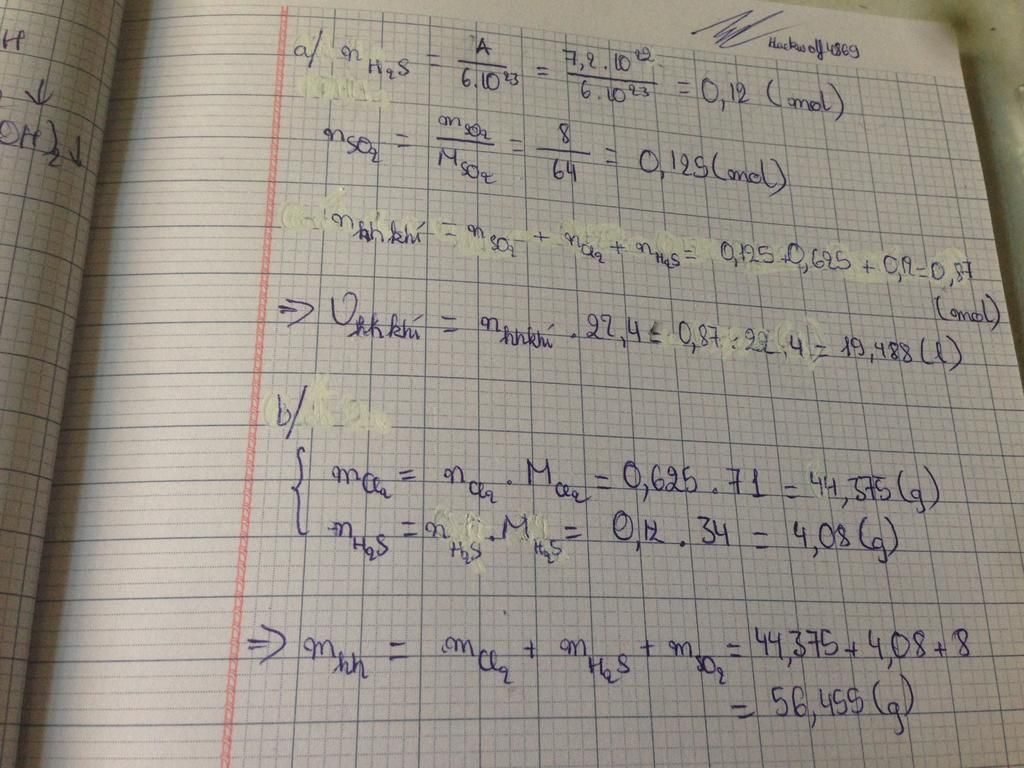 Hackwolf4869
H
↓
OH)₂↓
a/ n_H₂S = A / 6.10²³ = 7,2.10²² / 6.10²³ = 0,12 (mol)
n_SO₂ = m_SO₂ / M_SO₂ = 8 / 64 = 0,125 (mol)
n_hh khí = n_SO₂ + n_Cl₂ + n_H₂S = 0,125 + 0,625 + 0,12 = 0,87
(mol)
⇒ V_hh khí = n_hh khí . 22,4 = 0,87 . 22,4 = 19,488 (l)
b/
m_Cl₂ = n_Cl₂ . M_Cl₂ = 0,625 . 71 = 44,375 (g)
m_H₂S = n_H₂S . M_H₂S = 0,12 . 34 = 4,08 (g)
⇒ m_hh = m_Cl₂ + m_H₂S + m_SO₂ = 44,375 + 4,08 + 8
= 56,455 (g)